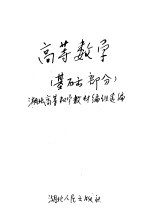 高等数学
(基础部分)
湖北高等函授教材编组选编
湖北人民出版社